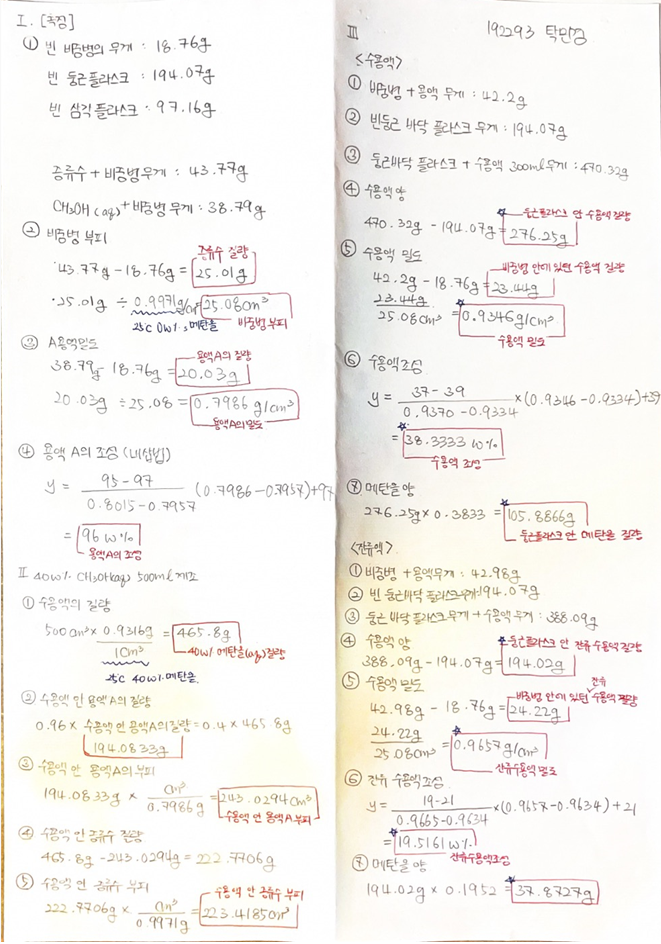 I. [측정]
① 빈 비중병의 무게 : 18.76g
빈 둥근플라스크 : 194.07g
빈 삼각플라스크 : 97.16g
증류수 + 비중병무게 : 43.77g
CH3OH (aq) + 비중병 무게 : 38.79g
② 비중병 부피
증류수 질량
·43.77g - 18.76g = 25.01g
·25.01g ÷ 0.9971g/cm³ = 25.08cm³
25℃ 0w% 메탄올 비중병 부피
③ A용액밀도
용액A의 질량
38.79g - 18.76g = 20.03g
20.03g ÷ 25.08 = 0.7986 g/cm³
용액A의밀도
④ 용액 A의 조성 (내삽법)
y = 95-97 / 0.8015-0.7957 (0.7986-0.7957)+97
= 96 w%
용액A의 조성
II 40w% CH3OH(aq) 500ml 제조
① 수용액의 질량
500cm³ × 0.9316g / 1cm³ = 465.8g
40w% 메탄올(aq) 질량
25℃ 40w% 메탄올
② 수용액 안 용액A의 질량
0.96 × 수용액 안 용액A의질량 = 0.4 × 465.8g
194.0833g
③ 수용액 안 용액A의 부피
194.0833g × cm³ / 0.7986g = 243.0294cm³
수용액 안 용액A 부피
④ 수용액 안 증류수 질량
465.8g - 243.0294g = 222.7706g
⑤ 수용액 안 증류수 부피
수용액 안 증류수 부피
222.7706g × cm³ / 0.9971g = 223.4185cm³
III
192293 탁민경
<수용액>
① 비중병 + 용액 무게 : 42.2g
② 빈둥근 바닥 플라스크 무게 : 194.07g
③ 둥근바닥 플라스크 + 수용액 300ml 무게 : 470.32g
④ 수용액 양
둥근플라스크 안 수용액 질량
470.32g - 194.07g = 276.25g
⑤ 수용액 밀도
비중병 안에 있던 수용액 질량
42.2g - 18.76g = 23.44g
23.44g / 25.08cm³ = 0.9346g/cm³
수용액 밀도
⑥ 수용액조성
y = 37-39 / 0.9370-0.9334 × (0.9346-0.9334)+39
= 38.3333 w%
수용액 조성
⑦ 메탄올양
276.25g × 0.3833 = 105.8866g
둥근플라스크 안 메탄올 질량
<잔류액>
① 비중병 + 용액무게 : 42.98g
② 빈 둥근바닥 플라스크무게 : 194.07g
③ 둥근 바닥 플라스크무게 + 수용액 무게 : 388.09g
④ 수용액 양
둥근플라스크 안 잔류 수용액 질량
388.09g - 194.07g = 194.02g
⑤ 수용액 밀도
비중병 안에 있던 잔류 수용액 질량
42.98g - 18.76g = 24.22g
24.22g / 25.08cm³ = 0.9657g/cm³
잔류수용액 밀도
⑥ 잔류 수용액조성
y = 19-21 / 0.9665-0.9634 × (0.9657-0.9634)+21
= 19.5161 w%
잔류수용액조성
⑦ 메탄올 양
194.02g × 0.1952 = 37.8727g